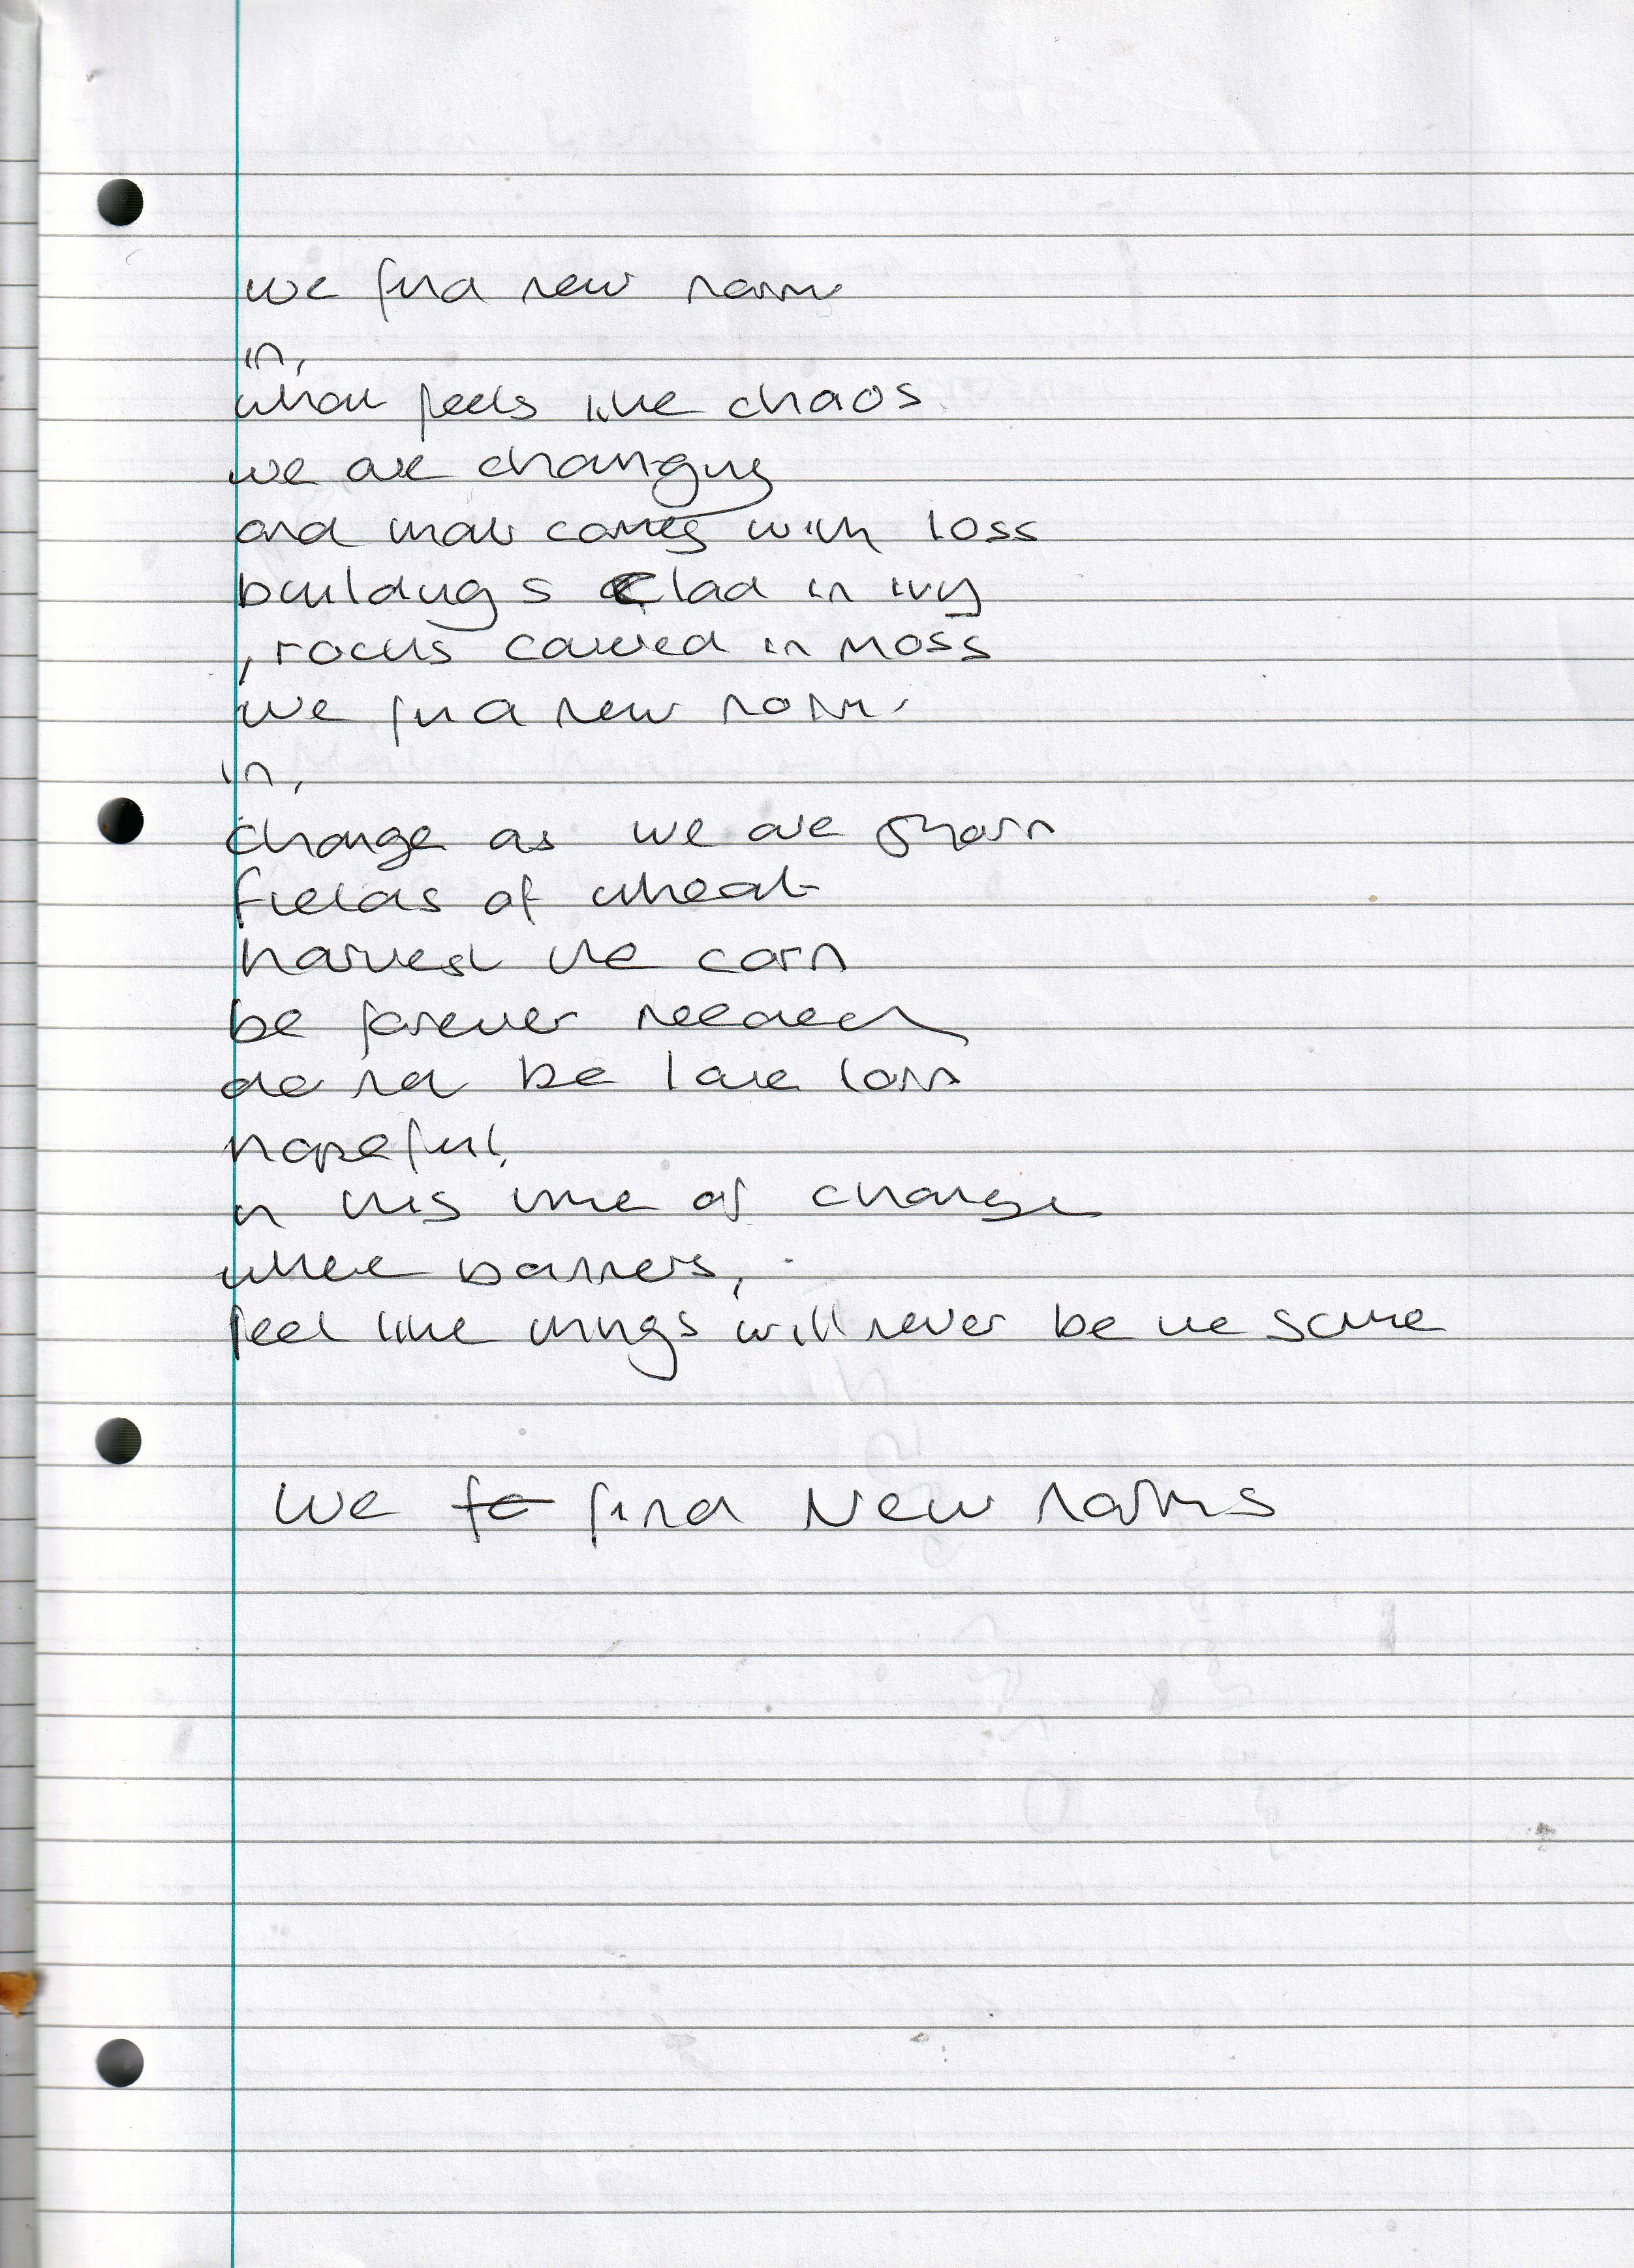 we find new norm
in,
what feels like chaos
we are changing
and that comes with loss
buildings clad in ivy
, rocks covered in moss
we find new norm
in,
change as we are shorn
fields of wheat
harvest the corn
be forever needed
do not be love lorn
hopeful,
in this time of change
where barriers,
feel like things will never be the same
We find New norms